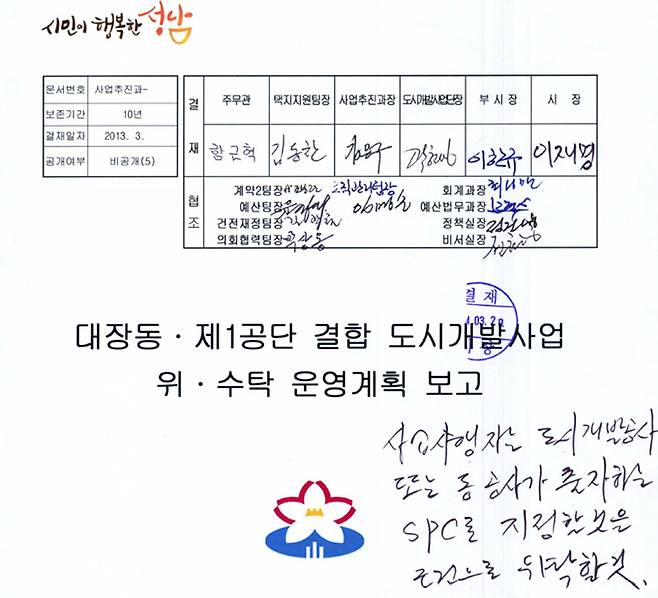 시민이 행복한 성남
문서번호 사업추진과-
보존기간 10년
결재일자 2013. 3.
공개여부 비공개(5)
결재 주무관 택지지원팀장 사업추진과장 도시개발사업단장 부시장 시장
황근혁 김동한 이재명
협조 계약2팀장 조직관리팀장 회계과장
예산팀장 예산법무과장
건전재정팀장 정책실장
의회협력팀장 비서실장
결재
.03.2
대장동·제1공단 결합 도시개발사업
위·수탁 운영계획 보고
사업시행자는 도시개발공사
또는 동 공사가 출자하는
SPC로 지정할것을
조건으로 위탁할것.